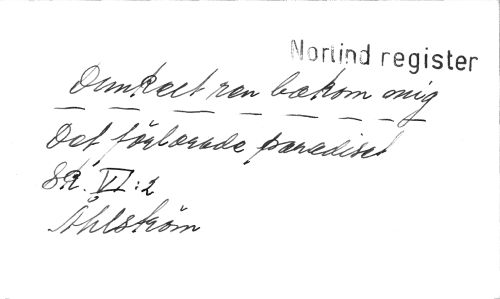 Norlind register
Dunkelt ren bakom mig
Det förlorade paradiset
Sk. VI:2
Åhlström